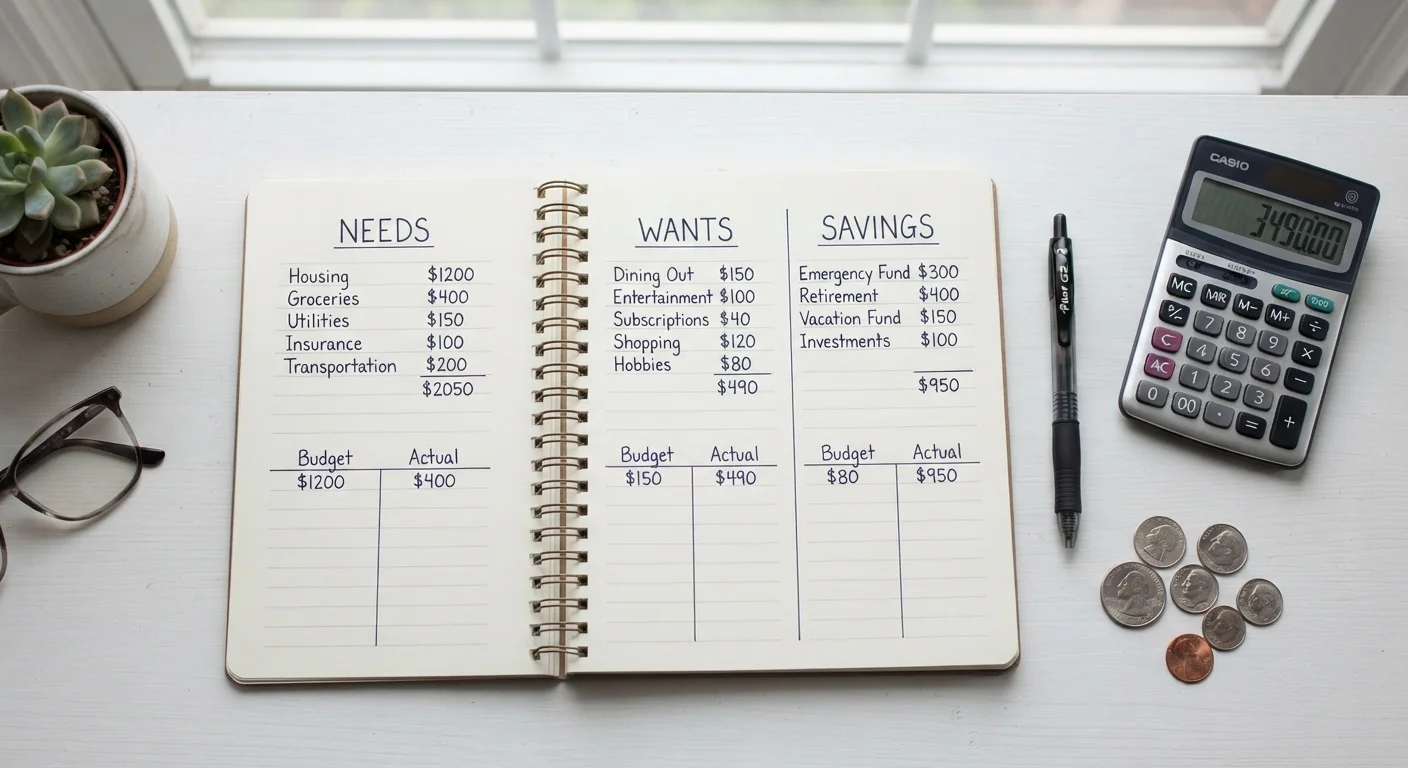 NEEDS
Housing $1200
Groceries $400
Utilities $150
Insurance $100
Transportation $200
$2050
Budget Actual
$1200 $400
WANTS
Dining Out $150
Entertainment $100
Subscriptions $40
Shopping $120
Hobbies $80
$490
Budget Actual
$150 $490
SAVINGS
Emergency Fund $300
Retirement $400
Vacation Fund $150
Investments $100
$950
Budget Actual
$80 $950
Pilot G2
CASIO
MC MR M- M+
% 7 8 9 ÷
C 4 5 6 ×
AC 1 2 3 −
0 00 · = +